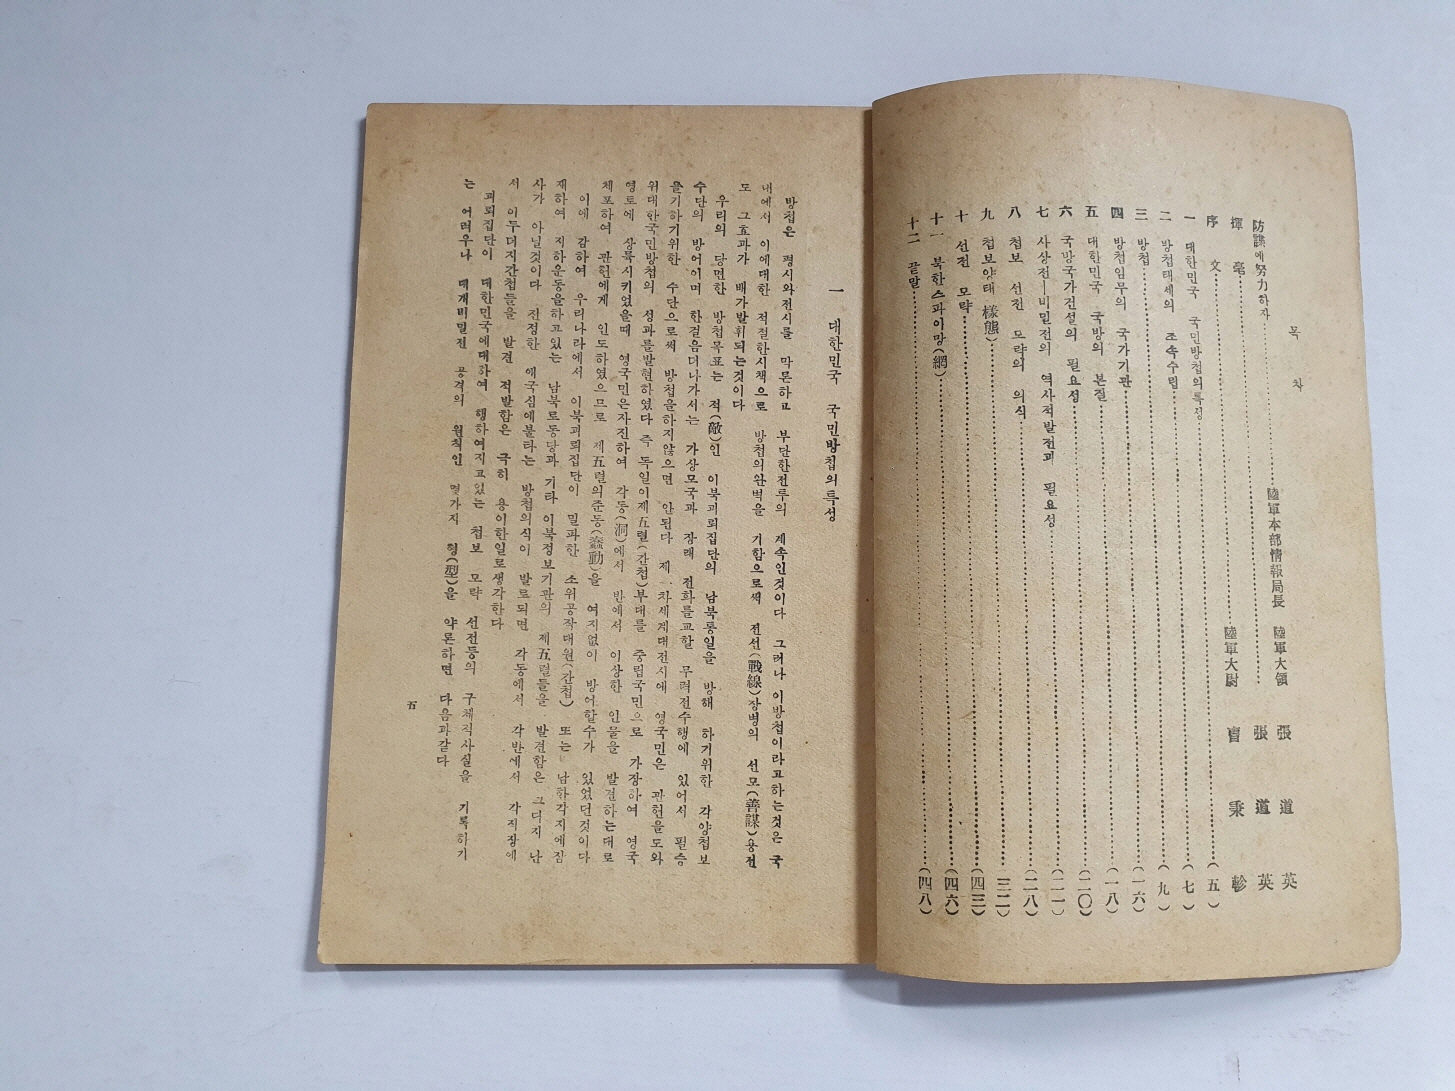 목 차
防諜에努力하자 陸軍本部情報局長 陸軍大領 張 道 英
揮 毫 張 道 英
序 文 陸軍大尉 秉 軫
一 대한민국 국민방첩의특성 (五)
二 방첩태세의 조속수립 (七)
三 방첩 (九)
四 방첩임무의 국가기관 (一六)
五 대한민국 국방의 본질 (一八)
六 국방국가건설의 필요성 (二〇)
七 사상전—비밀전의 역사적발전과 필요성 (二一)
八 첩보 선전 모략의 의식 (二八)
九 첩보양태 樣態) 三二)
十 선전 모략 (四三)
十一 북한스파이망(網) (四六)
十二 끝말 (四八)
一 대한민국 국민방첩의특성
방첩은 평시와전시를 막론하고 부단한전투의 계속인것이다 그러나 이방첩이라고하는것은 국
내에서 이에대한 적절한시책으로 방첩의완벽을 기함으로써 전선(戰線)장병의 선모(善謀)용전
도 그효과가 배가발휘되는것이다
우리의 당면한 방첩목표는 적(敵)인 이북괴뢰집단의 남북통일을 방해 하기위한 각양첩보
수단의 방어이며 한걸음더나가서는 가상모국과 장래 전화를교할 무력전수행에 있어서 필승
을기하기위한 수단으로써 방첩을하지않으면 안된다 제一차세계대전시에 영국민은 관헌을도와
위대한국민방첩의 성과를발현하였다 즉 독일이제五렬(간첩)부대를 중립국민으로 가장하여 영국
영토에 상륙시키었을때 영국민은자진하여 각동(洞)에서 반에서 이상한 인물을 발견하는대로
체포하여 관헌에게 인도하였으므로 제五렬의준동(蠢動)을 여지없이 방어할수가 있었던것이다
이에 감하여 우리나라에서 이북괴뢰집단이 밀파한 소위공작대원(간첩) 또는 남한각지에잠
재하여 지하운동을하고있는 남북로동당과 기타 이북정보기관의 제五렬들을 발견함은 그다지 난
사가 아닐것이다 진정한 애국심에불타는 방첩의식이 발로되면 각동에서 각반에서 각직장에
서 이두더지간첩들을 발견 적발함은 극히 용이한일로생각한다
괴뢰집단이 대한민국에대하여 행하여지고있는 첩보 모략 선전등의 구체적사실을 기록하기
는 어려우나 대개비밀전 공격의 원칙인 몇가지 형(型)을 약론하면 다음과같다
五